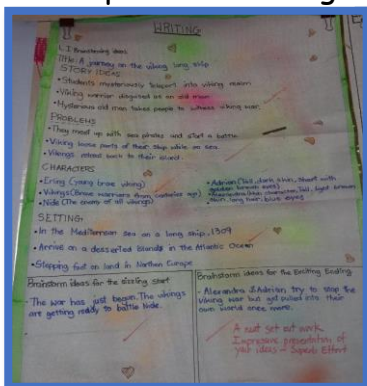 WRITING
L.I Brainstorming ideas.
Title: A journey on the viking long ship
STORY IDEAS
• Students mysteriously teleport into viking realm
• Viking warrior disguised as an old man
• Mysterious old man takes people to witness viking war.
PROBLEMS
• They meet up with sea pirates and start a battle.
• Viking loose parts of their ship while on sea.
• Vikings retreat back to their island.
CHARACTERS
• Erling (young brave viking)
• Vikings (Brave warriors from centuries ago)
• Nide (The enemy of all vikings)
• Adrian (Tall, dark skin, short with golden brown eyes)
long hair, blue eyes
SETTING
• In the Mediterranean sea on a long ship, 1309
• Arrive on a desserted islands in the Atlantic Ocean
• Stepping foot on land in Northern Europe
Brainstorm ideas for the sizzling start
- The war has just begun. The vikings
are getting ready to battle Nide.
Brainstorm ideas for the Exciting Ending
- Alexandra & Adrian try to stop the
viking war but get pulled into their
own world once more.
A neat set out work.
Impressive presentation of
your ideas - Superb Effort